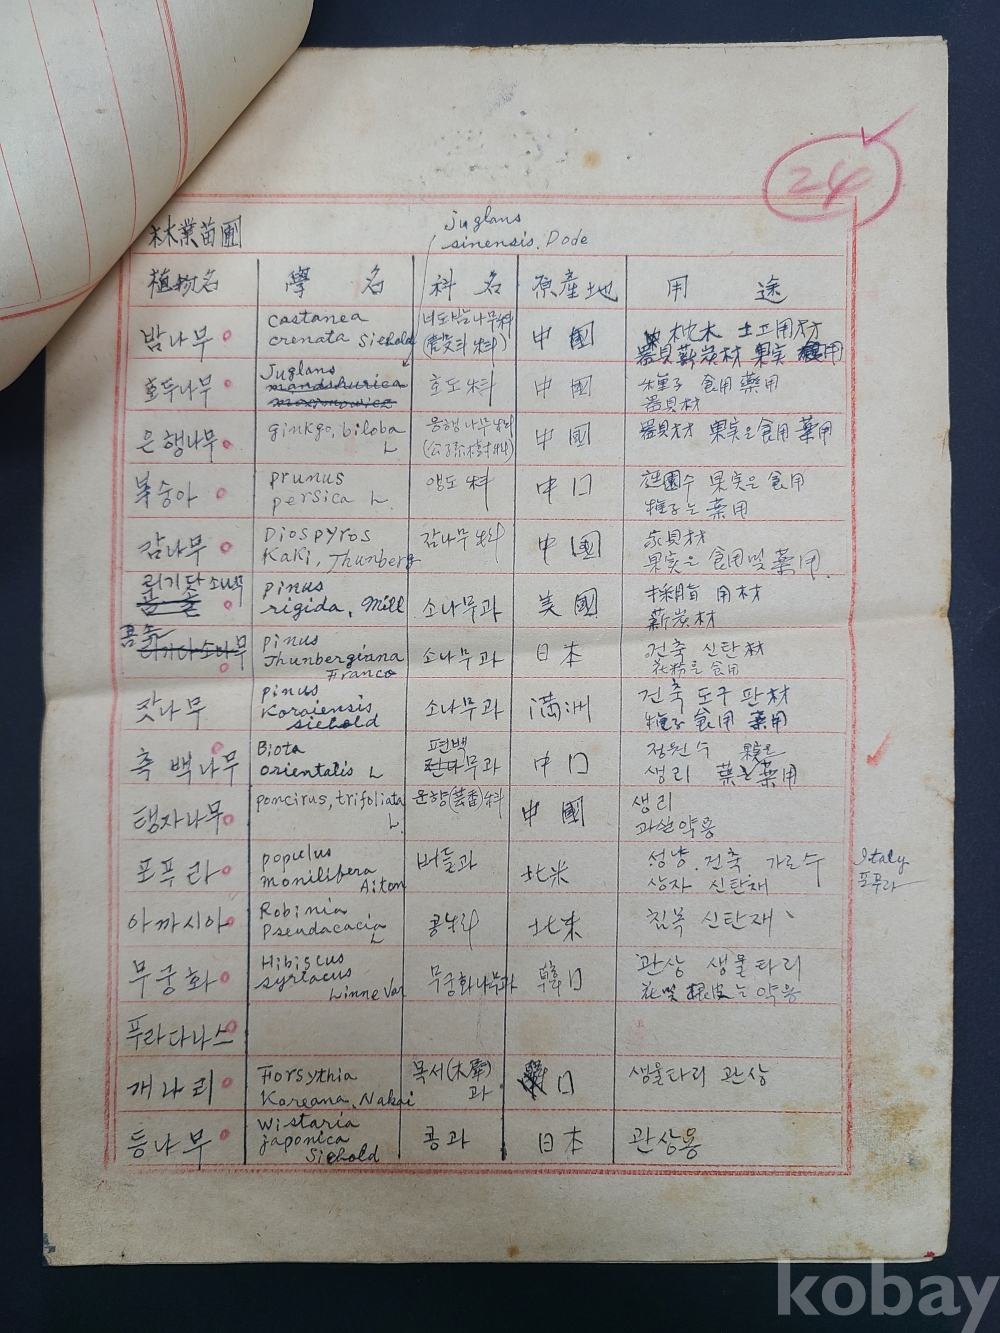 24
林業苗圃
juglans
sinensis. Dode
植物名 學名 科名 原産地 用途
밤나무 castanea 너도밤나무科 中國 枕木 土工用材
crenata Siebold 器具薪炭材 果実 食用
호두나무 Juglans 호도科 中國 種子 食用 藥用
mandshurica 器具材
maximowicz
은행나무 ginkgo, biloba 은행나무科 中國 器具材 果実은 食用 藥用
L (公孫樹科)
복숭아 prunus 앵도科 中口 庭園수 果実은 食用
persica L 種子는 藥用
감나무 Diospyros 감나무科 中國 家具材
Kaki, Thunberg 果実은 食用 및 藥用
리기다소나무 pinus 소나무과 美國 採脂 用材
rigida, Mill 薪炭材
곰솔
리기다소나무 pinus 소나무과 日本 건축 신탄材
Thunbergiana 花粉은 食用
Franco
잣나무 pinus 소나무과 満洲 건축 도구 판材
Koraiensis 種子 食用 藥用
siebold
측백나무 Biota 편백 中口 정원수
orientalis L 무과 생리 葉은 藥用
탱자나무 poncirus, trifoliata 운향(芸香)科 中國 생리
L. 과실약용
포푸라 populus 버들과 北米 성냥. 건축 가로수
monilifera 상자 신탄재
Aiton
Italy
포푸라
아까시아 Robinia 콩과 北米 침목 신탄재
Pseudacacia
L
무궁화 Hibiscus 무궁화나무과 韓口 관상 생울타리
syriacus 花 및 根皮는 약용
Linne Var
푸라다나스
개나리 Forsythia 목서(木犀) 口 생울타리 관상
Koreana. Nakai 과
등나무 Wistaria 콩과 日本 관상용
japonica
Siebold
kobay